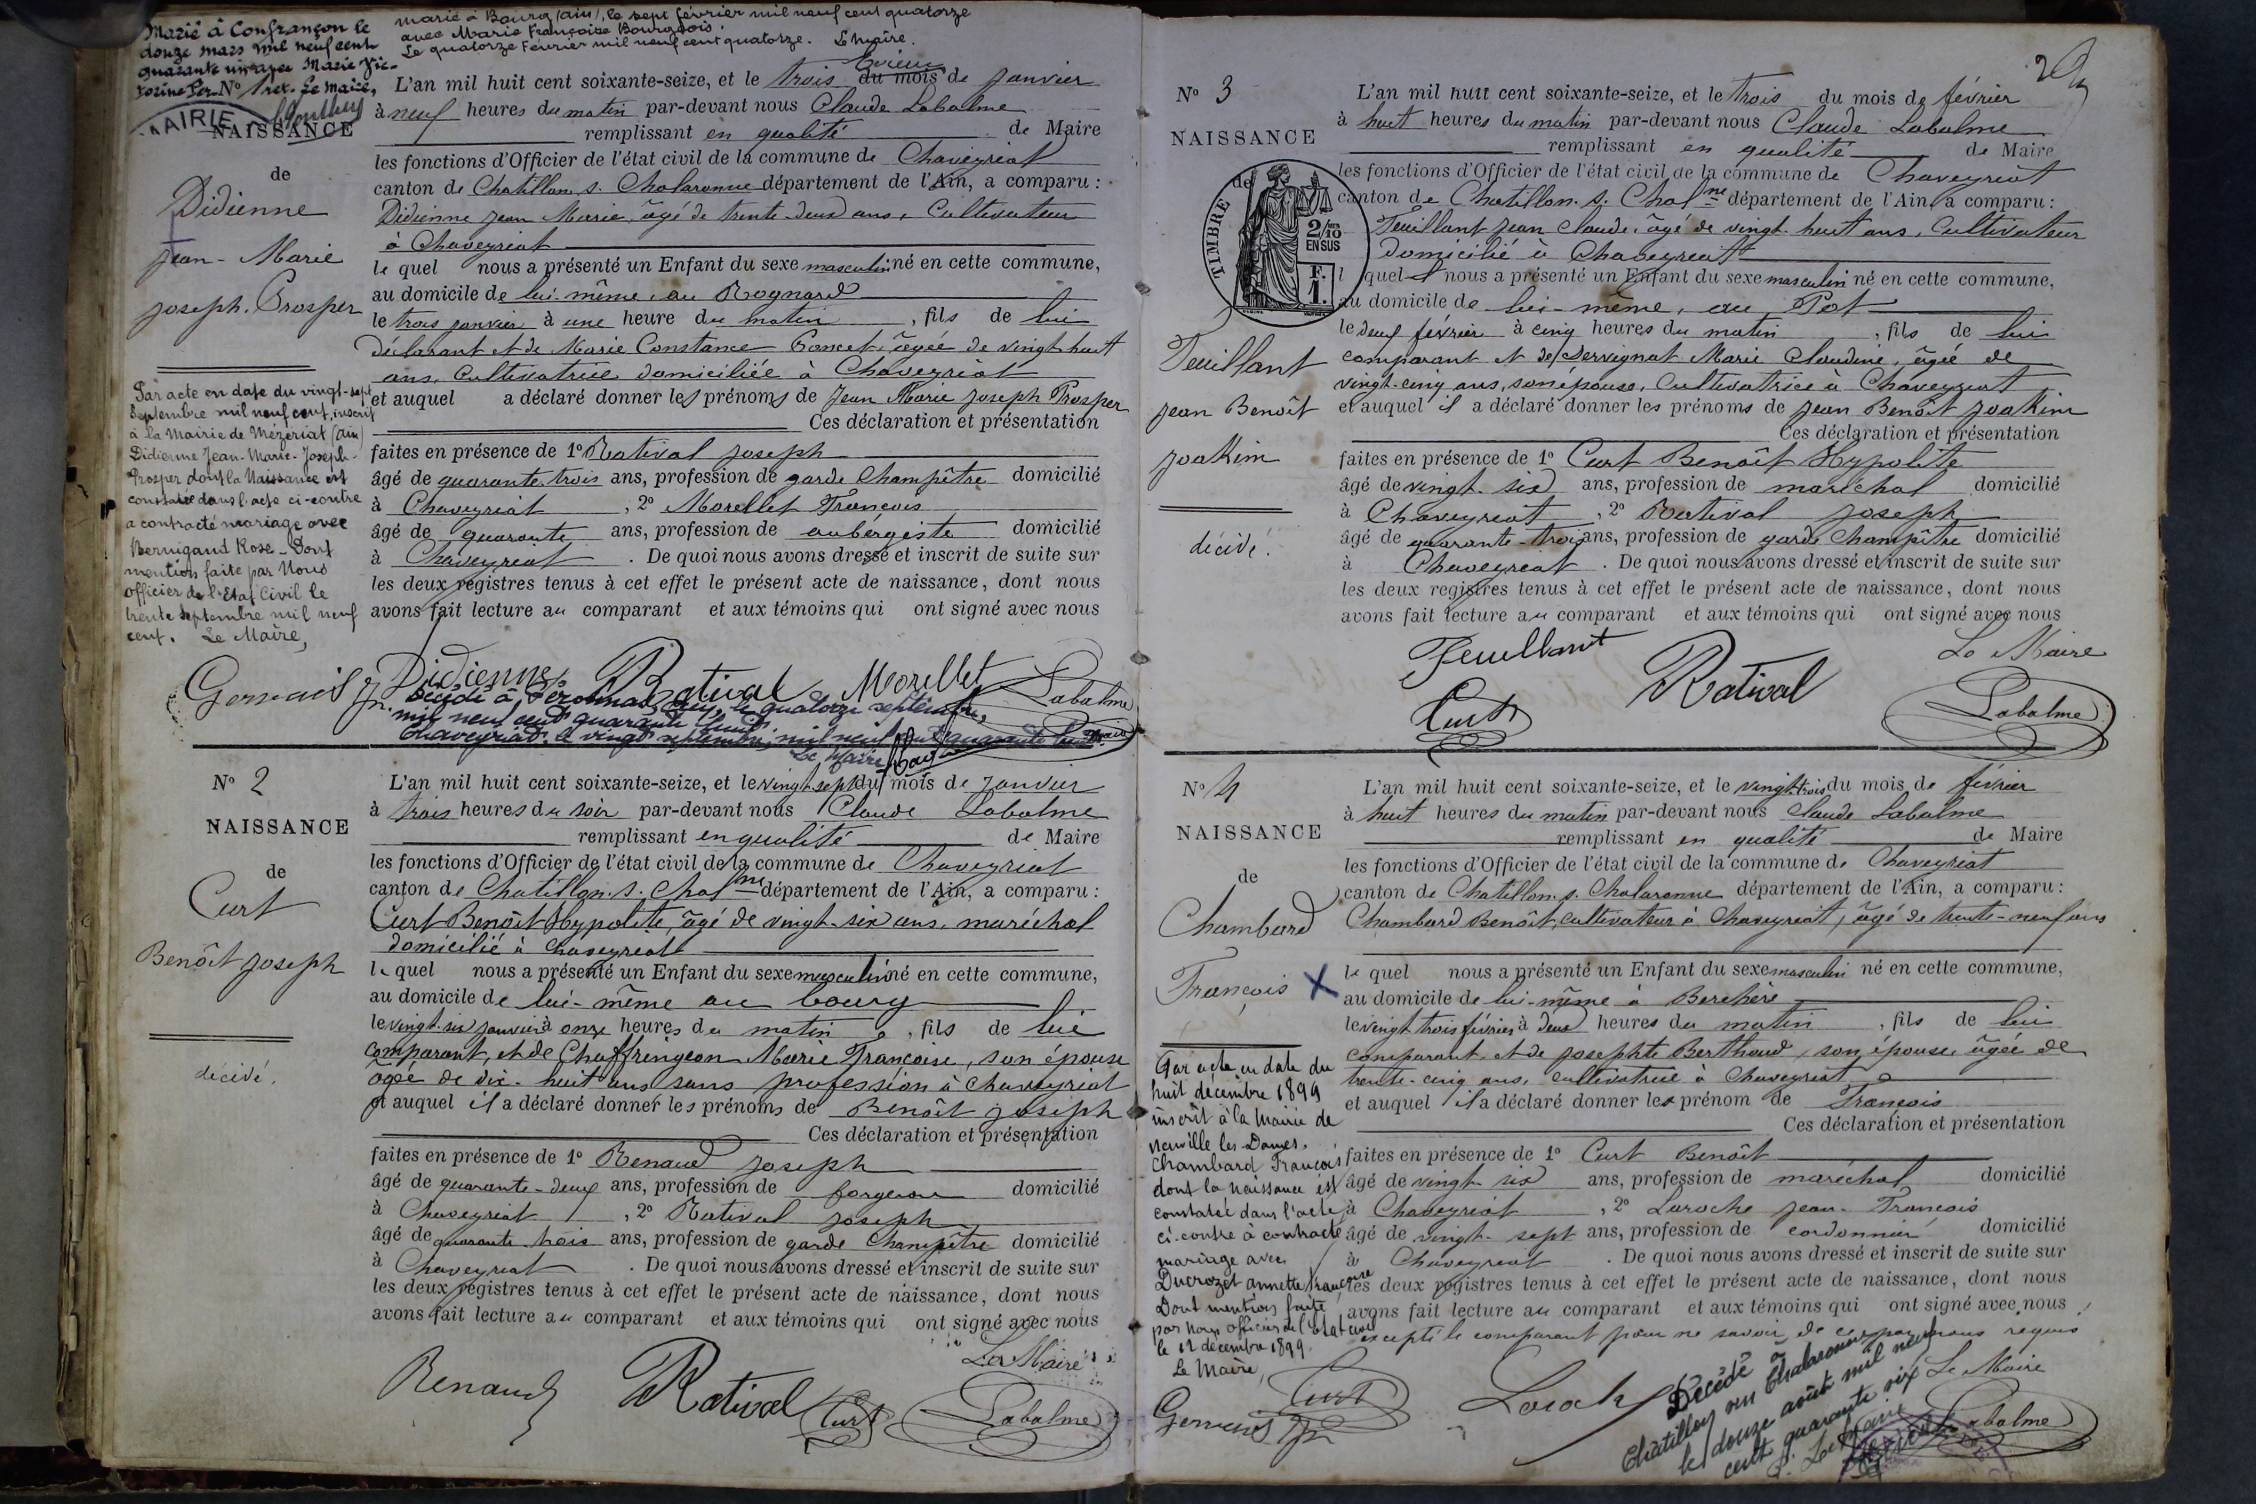 Marié à Confrançon le
douze mars mil neuf cent
quarante un avec Marie Vic-
torine Le Maire,
marié à Bourg (Ain), le sept février mil neuf cent quatorze
avec Marie Françoise Bourgeois.
Le quatorze Février mil neuf cent quatorze. Le Maire.
MAIRIE
NAISSANCE
de
Didienne
Jean-Marie
Joseph. Prosper
Par acte en date du vingt-sept
Septembre mil neuf cent, inscrit
à la Mairie de Mézériat (Ain)
Didienne Jean-Marie-Joseph-
Prosper dont la Naissance est
constatée dans l'acte ci-contre
a contracté mariage avec
Bernigaud Rose - Dont
mention faite par Nous
officier de l'Etat Civil le
trente septembre mil neuf
cent. Le Maire,
L'an mil huit cent soixante-seize, et le trois du mois de Janvier
à neuf heures du matin par-devant nous Claude Labalme
remplissant en qualité de Maire
les fonctions d'Officier de l'état civil de la commune de Chaveyriat
canton de Chatillon s. Chalaronne département de l'Ain, a comparu :
Didienne Jean Marie, âgé de trente-deux ans, Cultivateur
à Chaveyriat
le quel nous a présenté un Enfant du sexe masculin né en cette commune,
au domicile de lui-même, au Rognard
le trois janvier à une heure du matin, fils de lui
déclarant et de Marie Constance Poncet, âgée de vingt-huit
ans, Cultivatrice domiciliée à Chaveyriat
et auquel a déclaré donner les prénoms de Jean Marie Joseph Prosper
Ces déclaration et présentation
faites en présence de 1° Rativat Joseph
âgé de quarante trois ans, profession de garde Champêtre domicilié
à Chaveyriat, 2° Morellet François
âgé de quarante ans, profession de aubergiste domicilié
à Chaveyriat. De quoi nous avons dressé et inscrit de suite sur
les deux registres tenus à cet effet le présent acte de naissance, dont nous
avons fait lecture au comparant et aux témoins qui ont signé avec nous
Gervais Didienne Rativat Morellet Labalme
Décédé à Péronnas, le quatorze septembre
mil neuf cent quarante huit
Chaveyriat, le vingt septembre mil neuf cent quarante huit.
Le Maire
N° 2
NAISSANCE
de
Curt
Benoît Joseph
décédé.
L'an mil huit cent soixante-seize, et le vingt-sept du mois de Janvier
à trois heures du soir par-devant nous Claude Labalme
remplissant en qualité de Maire
les fonctions d'Officier de l'état civil de la commune de Chaveyriat
canton de Chatillon. s. Chalne département de l'Ain, a comparu :
Curt Benoît Hypolite, âgé de vingt-six ans, maréchal
domicilié à Chaveyriat
le quel nous a présenté un Enfant du sexe masculin né en cette commune,
au domicile de lui-même au bourg
le vingt-six janvier à onze heures du matin, fils de lui
comparant, et de Chaffringeon Marie Françoise, son épouse
âgée de dix-huit ans sans profession à Chaveyriat
et auquel il a déclaré donner les prénoms de Benoît Joseph
Ces déclaration et présentation
faites en présence de 1° Renaud Joseph
âgé de quarante-deux ans, profession de forgeron domicilié
à Chaveyriat, 2° Rativat Joseph
âgé de quarante trois ans, profession de garde Champêtre domicilié
à Chaveyriat. De quoi nous avons dressé et inscrit de suite sur
les deux registres tenus à cet effet le présent acte de naissance, dont nous
avons fait lecture au comparant et aux témoins qui ont signé avec nous
Le Maire
Renaud Rativat Curt Labalme
N° 3
NAISSANCE
de
TIMBRE
2/10
EN SUS
F.
1.
Feuillant
Jean Benoît
Joakim
décédé.
L'an mil huit cent soixante-seize, et le trois du mois de février
à huit heures du matin par-devant nous Claude Labalme
remplissant en qualité de Maire
les fonctions d'Officier de l'état civil de la commune de Chaveyriat
canton de Chatillon. s. Chalne département de l'Ain, a comparu :
Feuillant Jean Claude, âgé de vingt-huit ans, Cultivateur
domicilié à Chaveyriat
l quel nous a présenté un Enfant du sexe masculin né en cette commune,
au domicile de lui-même, au Pot
le deux février à cinq heures du matin, fils de lui
comparant et de Servignat Marie Claudine, âgée de
vingt-cinq ans, son épouse, Cultivatrice à Chaveyriat
et auquel il a déclaré donner les prénoms de Jean Benoît Joakim
Ces déclaration et présentation
faites en présence de 1° Curt Benoît Hypolite
âgé de vingt-six ans, profession de maréchal domicilié
à Chaveyriat, 2° Rativat Joseph
âgé de quarante-trois ans, profession de garde Champêtre domicilié
à Chaveyriat. De quoi nous avons dressé et inscrit de suite sur
les deux registres tenus à cet effet le présent acte de naissance, dont nous
avons fait lecture au comparant et aux témoins qui ont signé avec nous
Feuillant Le Maire
Curt Rativat Labalme
N° 4
NAISSANCE
de
Chambard
François X
Par acte en date du
huit décembre 1899
inscrit à la Mairie de
Neuville les Dames,
Chambard François
dont la Naissance est
constatée dans l'acte
ci-contre à contracté
mariage avec
Ducrozet Annette Françoise
Dont mention faite
par Nous officier de l'Etat civil
le 12 décembre 1899.
Le Maire,
Gervais
L'an mil huit cent soixante-seize, et le vingt-trois du mois de février
à huit heures du matin par-devant nous Claude Labalme
remplissant en qualité de Maire
les fonctions d'Officier de l'état civil de la commune de Chaveyriat
canton de Chatillon. s. Chalaronne département de l'Ain, a comparu :
Chambard Benoît, cultivateur à Chaveyriat, âgé de trente-neuf ans
le quel nous a présenté un Enfant du sexe masculin né en cette commune,
au domicile de lui-même à Berchère
le vingt trois février à deux heures du matin, fils de lui
comparant, et de Josephte Berthoud, son épouse, âgée de
trente-cinq ans, cultivatrice à Chaveyriat
et auquel il a déclaré donner les prénom de François
Ces déclaration et présentation
faites en présence de 1° Curt Benoît
âgé de vingt-six ans, profession de maréchal domicilié
à Chaveyriat, 2° Laroche Jean-François
âgé de vingt-sept ans, profession de cordonnier domicilié
à Chaveyriat. De quoi nous avons dressé et inscrit de suite sur
les deux registres tenus à cet effet le présent acte de naissance, dont nous
avons fait lecture au comparant et aux témoins qui ont signé avec nous,
excepté le comparant pour ne savoir, de ce par nous requis
Curt Laroche Le Maire
Labalme
Décédé à
Chatillon sur Chalaronne
le douze août mil neuf
cent quarante six
Le Maire